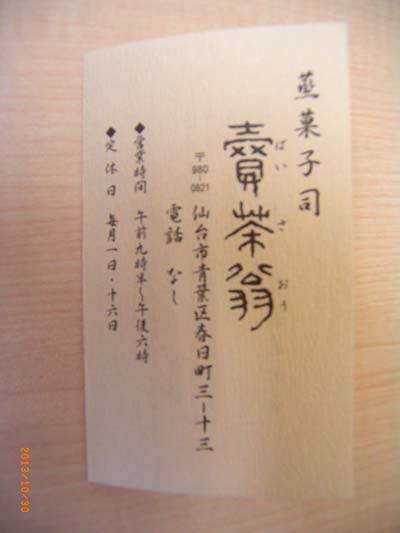 蒸菓子司
賣茶翁
ばいさおう
〒980-0821
仙台市青葉区春日町三ー十三
電話 なし
◆営業時間 午前九時半〜午後六時
◆定休日 毎月一日・十六日
2013/10/30